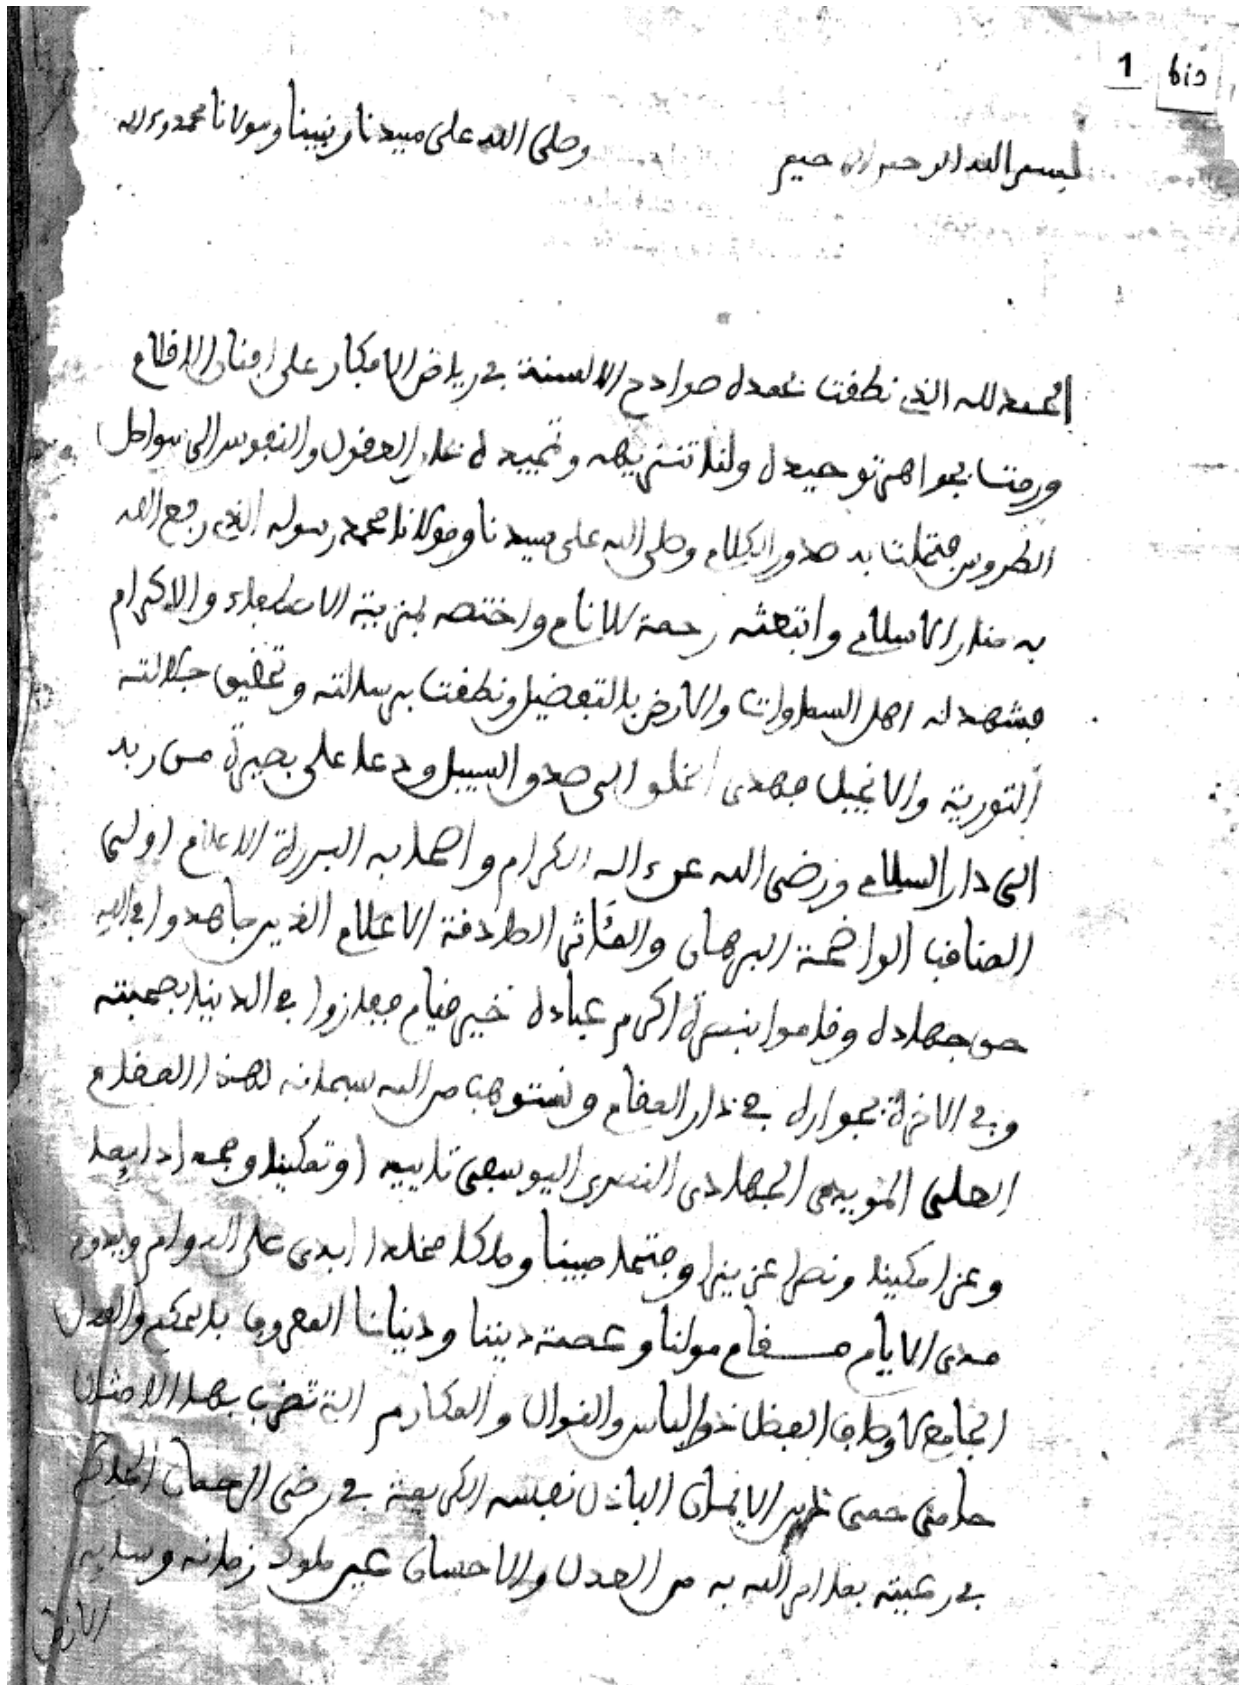 1 bis
بسم الله الرحمن الرحيم وصلى الله على سيدنا ونبينا ومولانا محمد وءاله
الحمد لله الذي نطقت بحمده صوادح الالسنة في رياض الافكار على افنان الاقلام
ورمت بجواهر توحيده ولئلا تنزيهه وتمجيده العقول والنفوس الى سواحل
الطروس فتحلت به صدور الكلام وصلى الله على سيدنا ومولانا محمد رسوله الذي رفع الله
به منار الاسلام وابتعثه رحمة للانام واختصه بمزية الاصطفاء والاكرام
فشهد له اهل السماوات والارض بالتفضيل ونطقت برسالته وتحقيق جلالته
التورية والانجيل فهدى الخلق الى السبيل ودعا على بصيرة من ربه
الى دار السلام ورضي الله عن ءاله الكرام واصحابه البررة الاعلام اولى
المناقب الواضحة البرهان والمئاثر الصادقة الاعلام الذين جاهدوا في الله
حق جهاده وقاموا بنصرة اكرم عباده خير قيام ففازوا في الدنيا بصحبته
وفي الاخرة بجواره في دار المقام ونستوهب من الله سبحانه لهذا المقام
العلى المويدى الجهادى النصرى اليوسفى تاييدا وتمكينا
وعزا مكينا ونصرا عزيزا وفتحا مبينا وملكا مخلدا ابدى على الدوام
مدى الايام مقام مولنا وعصمة ديننا ودنيانا المعروف بالحكم والعدل
الجامع لاوصاف الفضل ذو الباس والنوال والمكارم التي تضرب بها الامثال
حامى حمى الايمان الباذل نفسه الكريمة في رضى الرحمان الحاكم
في رعيته بما امر الله به من العدل والاحسان ملوك زمانه
الارض